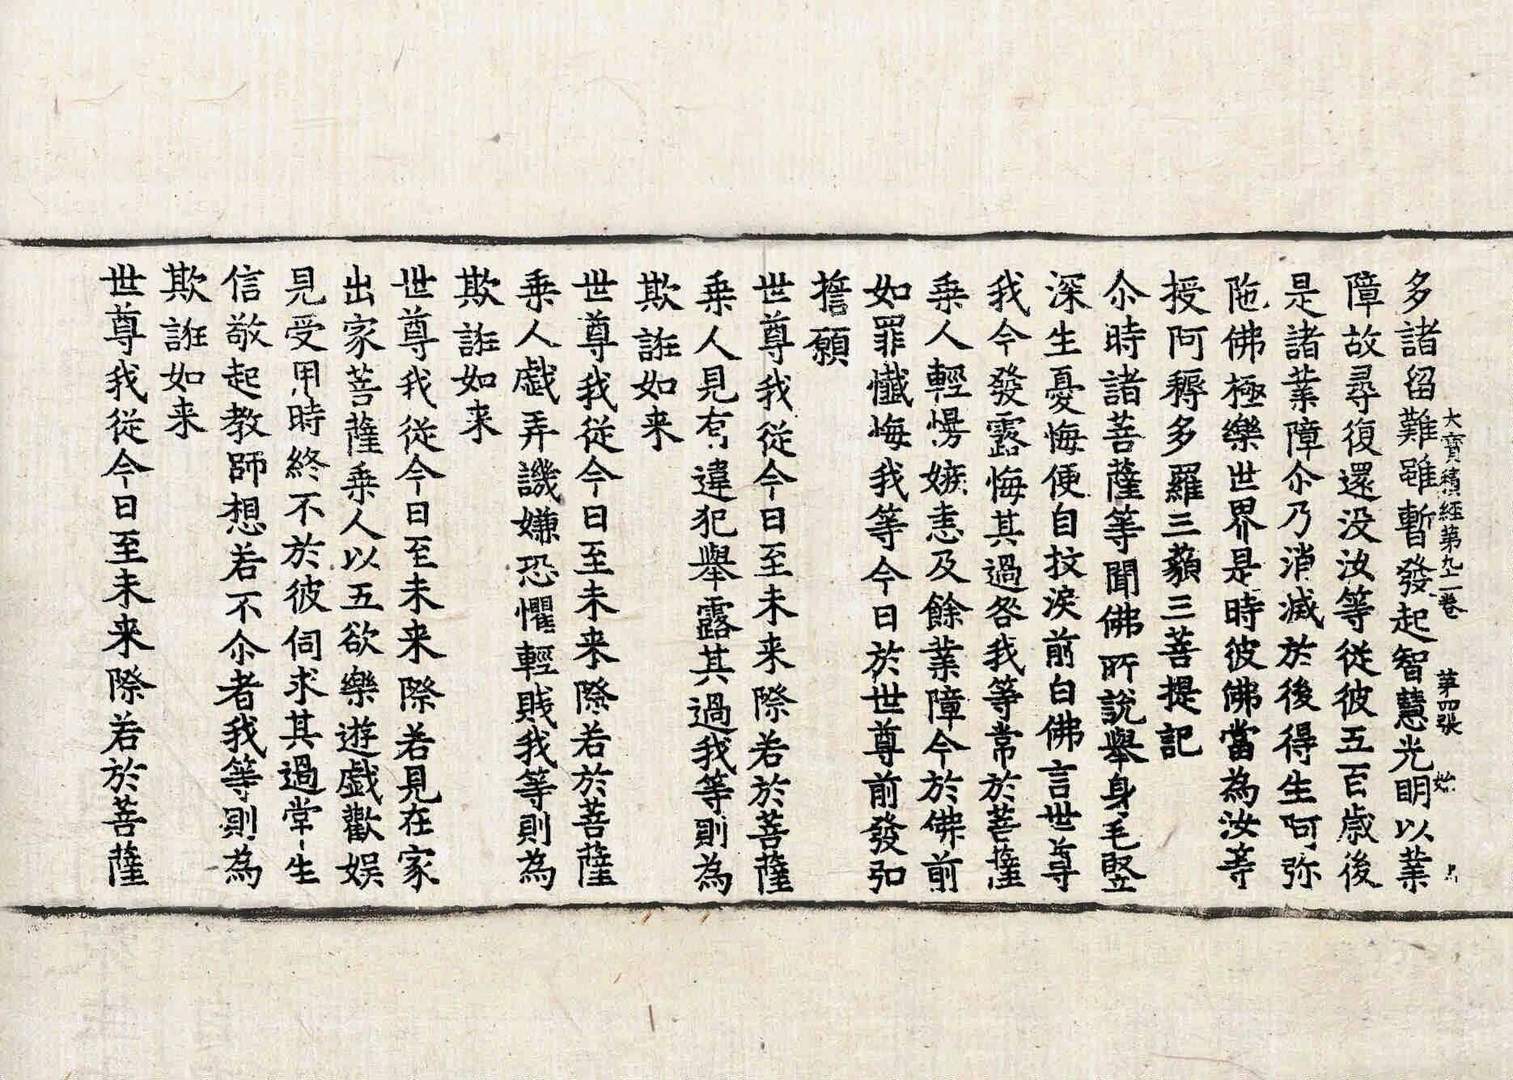 大寶積經第九十二卷 第四張 始
多諸留難雖暫發起智慧光明以業
障故尋復還没汝等從彼五百歲後
是諸業障尒乃消滅於後得生阿弥
陁佛極樂世界是時彼佛當為汝等
授阿耨多羅三藐三菩提記
尒時諸菩薩等聞佛所說舉身毛竪
深生憂悔便自抆淚前白佛言世尊
我今發露悔其過咎我等常於菩薩
乗人輕慢嫉恚及餘業障今於佛前
如罪懺悔我等今日於世尊前發弘
誓願
世尊我從今日至未来際若於菩薩
乗人見有違犯舉露其過我等則為
欺誑如来
世尊我從今日至未来際若於菩薩
乗人戲弄譏嫌恐懼輕賤我等則為
欺誑如来
世尊我從今日至未来際若見在家
出家菩薩乗人以五欲樂遊戲歡娛
見受用時終不於彼伺求其過常生
信敬起教師想若不尒者我等則為
欺誑如来
世尊我從今日至未来際若於菩薩